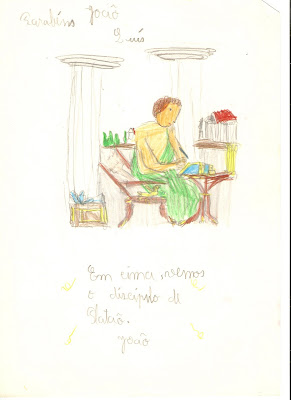 Parabéns João
Luís
Em cima, vemos
o discípulo de
Platão.
João